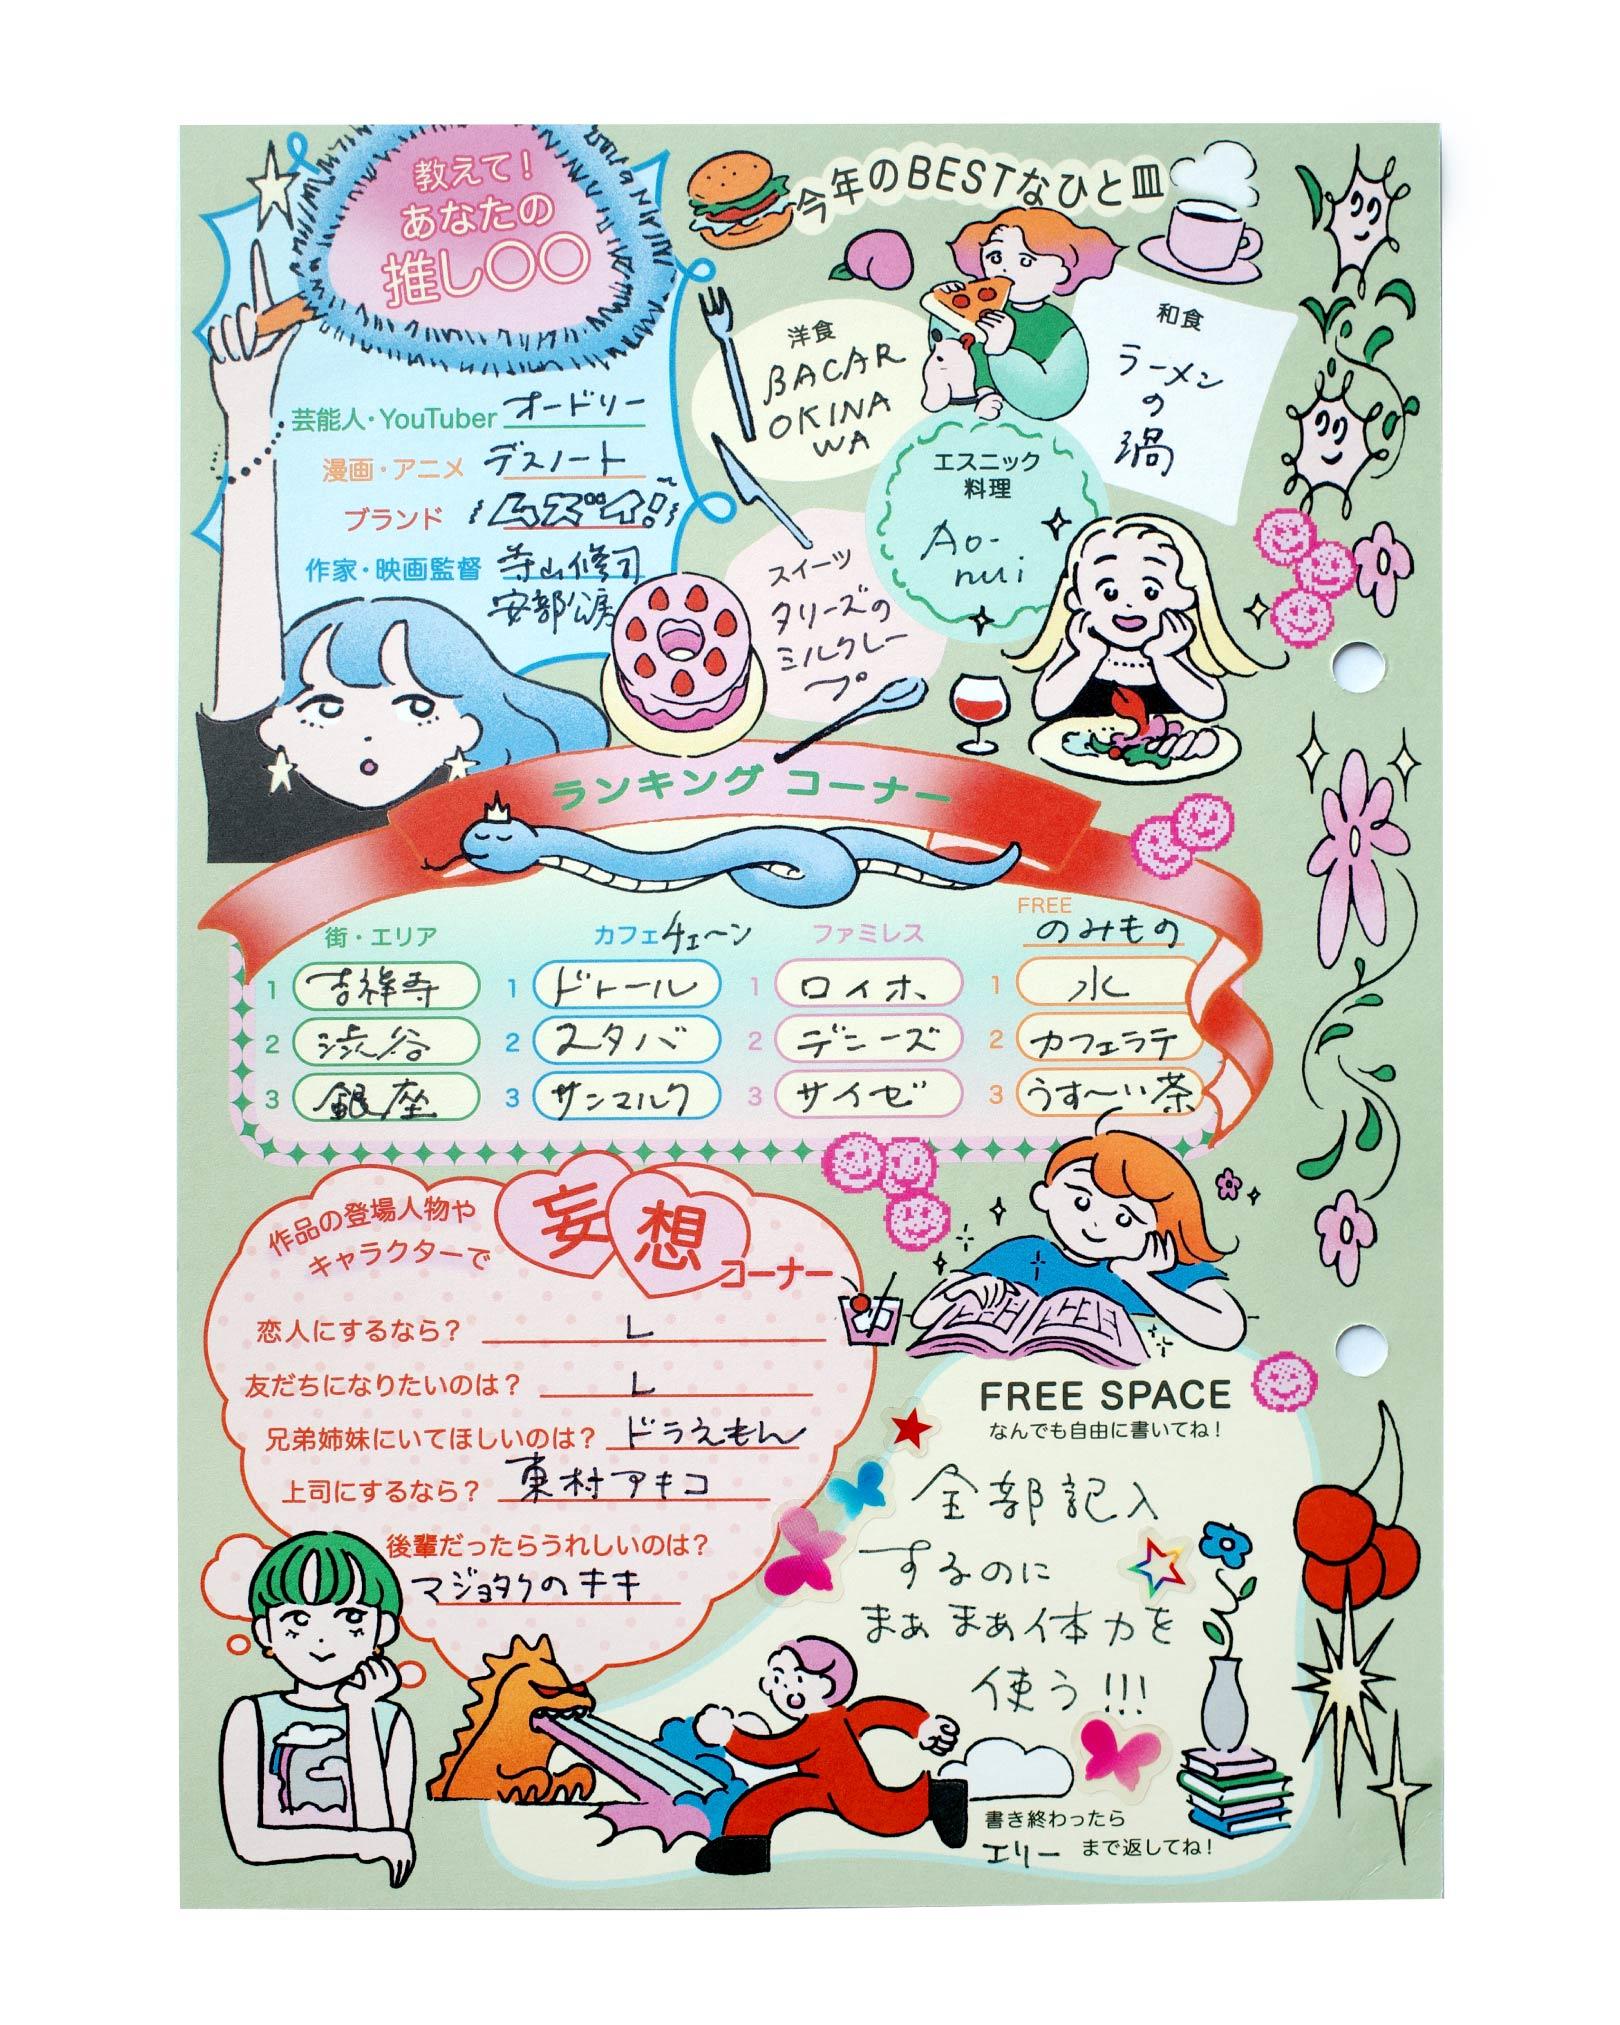 教えて!
あなたの
推し〇〇
芸能人・YouTuber オードリー
漫画・アニメ デスノート
ブランド ムズイ!
作家・映画監督 寺山修司
安部公房
今年のBESTなひと皿
洋食
BACAR
OKINA
WA
和食
ラーメン
の
渦
エスニック
料理
Ao-
nui
スイーツ
タリーズの
ミルクレー
プ
ランキング コーナー
街・エリア
1 吉祥寺
2 渋谷
3 銀座
カフェチェ〜ン
1 ドトール
2 スタバ
3 サンマルク
ファミレス
1 ロイホ
2 デニーズ
3 サイゼ
FREE
のみもの
1 水
2 カフェラテ
3 うす〜い茶
作品の登場人物や
キャラクターで
妄想コーナー
恋人にするなら? L
友だちになりたいのは? L
兄弟姉妹にいてほしいのは? ドラえもん
上司にするなら? 東村アキコ
後輩だったらうれしいのは?
マジョタクのキキ
FREE SPACE
なんでも自由に書いてね!
全部記入
するのに
まぁまぁ体力を
使う!!!
書き終わったら
エリー まで返してね!